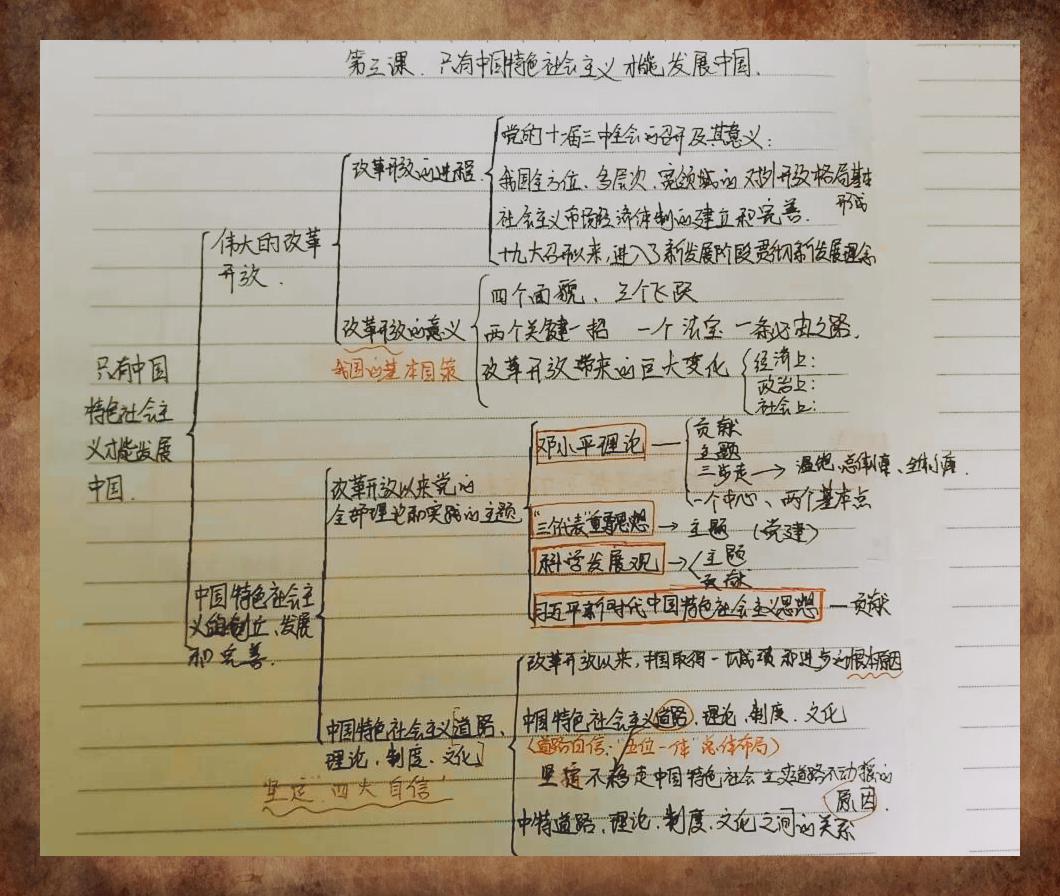 第三课. 只有中国特色社会主义才能发展中国.
只有中国
特色社会主
义才能发展
中国.
伟大的改革
开放.
改革开放的进程
党的十一届三中全会的召开及其意义:
我国全方位、多层次、宽领域的对外开放格局基本
形成
社会主义市场经济体制的建立和完善.
十九大召开以来,进入了新发展阶段贯彻新发展理念
改革开放的意义
我国的基本国策
四个面貌、三个飞跃
两个关键一招 一个法宝 一条必由之路.
改革开放带来的巨大变化
经济上:
政治上:
社会上:
中国特色社会主
义的创立、发展
和完善.
改革开放以来党的
全部理论和实践的主题
邓小平理论
贡献
主题
三步走→温饱、总体小康、全体小康.
一个中心、两个基本点
"三个代表"重要思想→主题(党建)
科学发展观→
主题
贡献
习近平新时代中国特色社会主义思想—贡献
中国特色社会主义道路、
理论、制度、文化
坚定"四大自信"
改革开放以来,中国取得一切成绩和进步之根本原因
中国特色社会主义道路、理论、制度、文化
(道路自信:"五位一体"总体布局)
坚定不移走中国特色社会主义道路不动摇的
原因.
中特道路、理论、制度、文化之间的关系